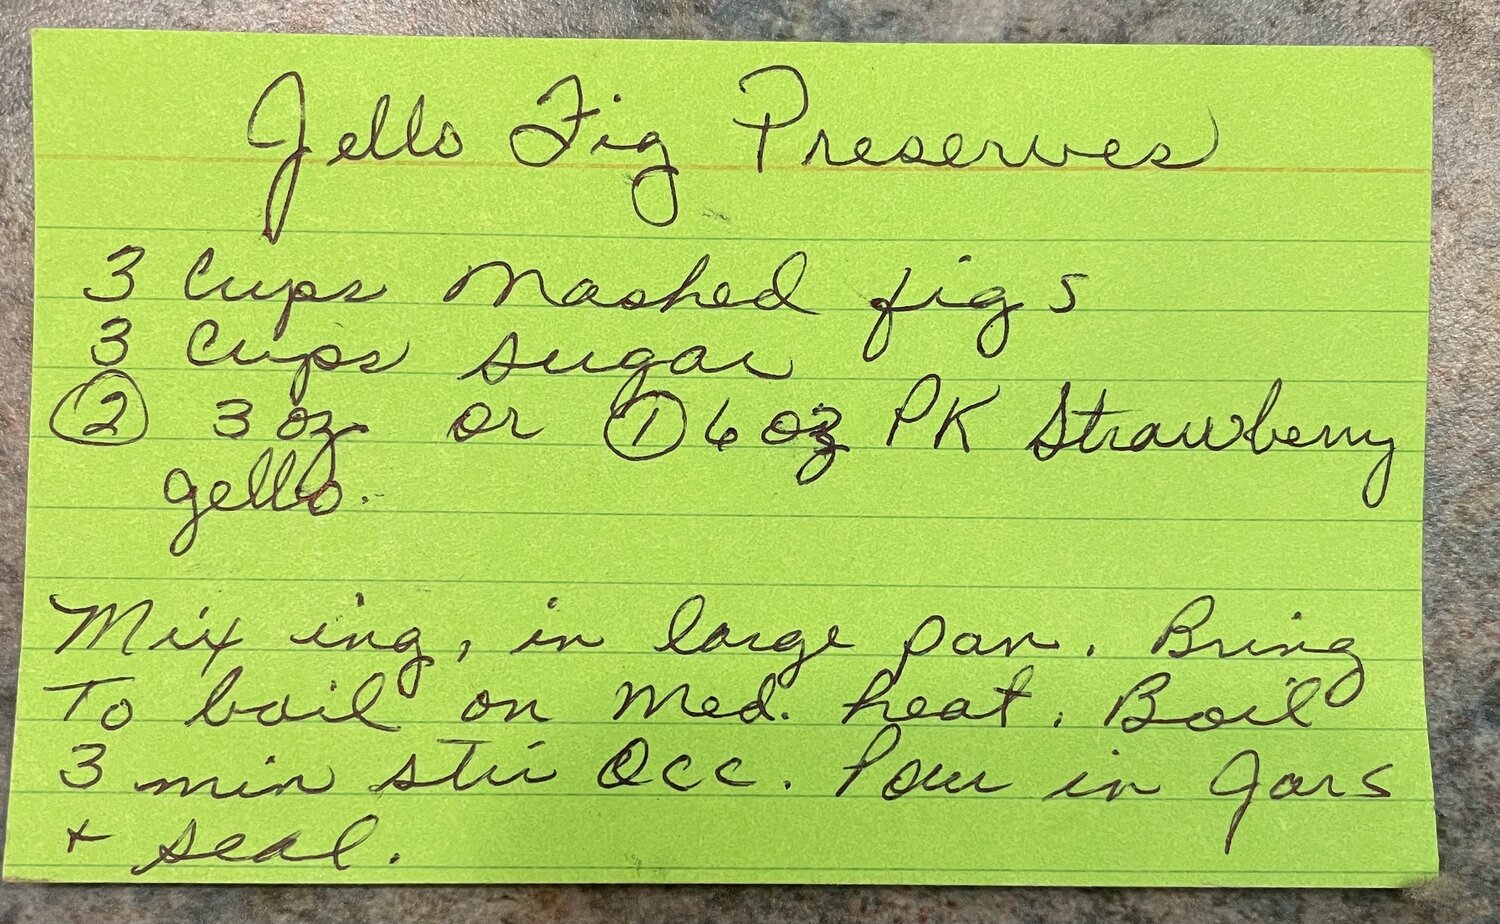 Jello Fig Preserves
3 Cups mashed figs
3 Cups sugar
② 3 oz or ① 6 oz PK Strawberry
gello.
Mix ing, in large pan. Bring
To boil on med. heat. Boil
3 min stir Occ. Pour in Jars
+ seal.